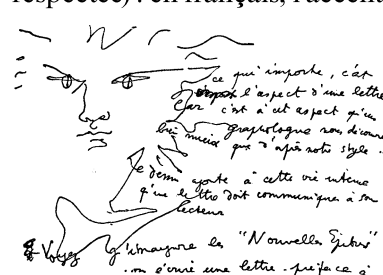 respectée) : en français, l'accent
ce qui importe, c'est
l'aspect d'une lettre
Car c'est à cet aspect qu'un
graphologue nous découvre
bien mieux que d'après notre style.
Le dessin ajoute à cette vie intense
que lettre doit communiquer à son
lecteur
Voyez j'inaugure les "Nouvelles
on s'écrire une lettre. préface à